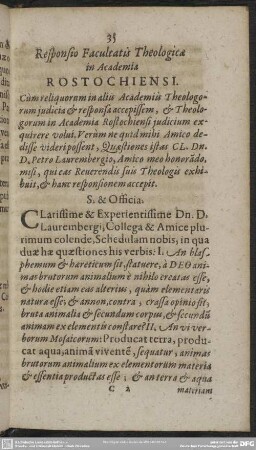 35
Responsio Facultatis Theologicæ
in Academia
ROSTOCHIENSI.
Cùm reliquorum in aliis Academiis Theologo-
rum judicia & responsa accepissem, & Theolo-
gorum in Academia Rostochiensi judicium ex-
quirere volui. Verùm ne quid mihi Amico de-
disse videri possent, Quæstiones istas CL. Dn.
D. Petro Laurembergio, Amico meo honorādo,
misi, qui eas Reverendis suis Theologis exhi-
buit, & hanc responsionem accepit.
S. & Officia.
CLarissime & Experientissime Dn. D.
Laurembergi, Collega & Amice plu-
rimum colende, Schedulam nobis, in qua
duæ hæ quæstiones his verbis: I. An blas-
phemum & hæreticum sit, statuere, à DEO ani-
mas brutorum animalium è nihilo creatas esse,
& hodie etiam eas alterius, quàm elementaris
naturæ esse; & annon, contra, crassa opinio sit,
bruta animalia & secundum corpus, & secundū
animam ex elementis constare? II. An vi ver-
borum Mosaicorum: Producat terra, produ-
cat aqua, animā viventē, sequatur, animas
brutorum animalium ex elementorum materia
& essentia productas esse; & an terra & aqua
C 2
materiam